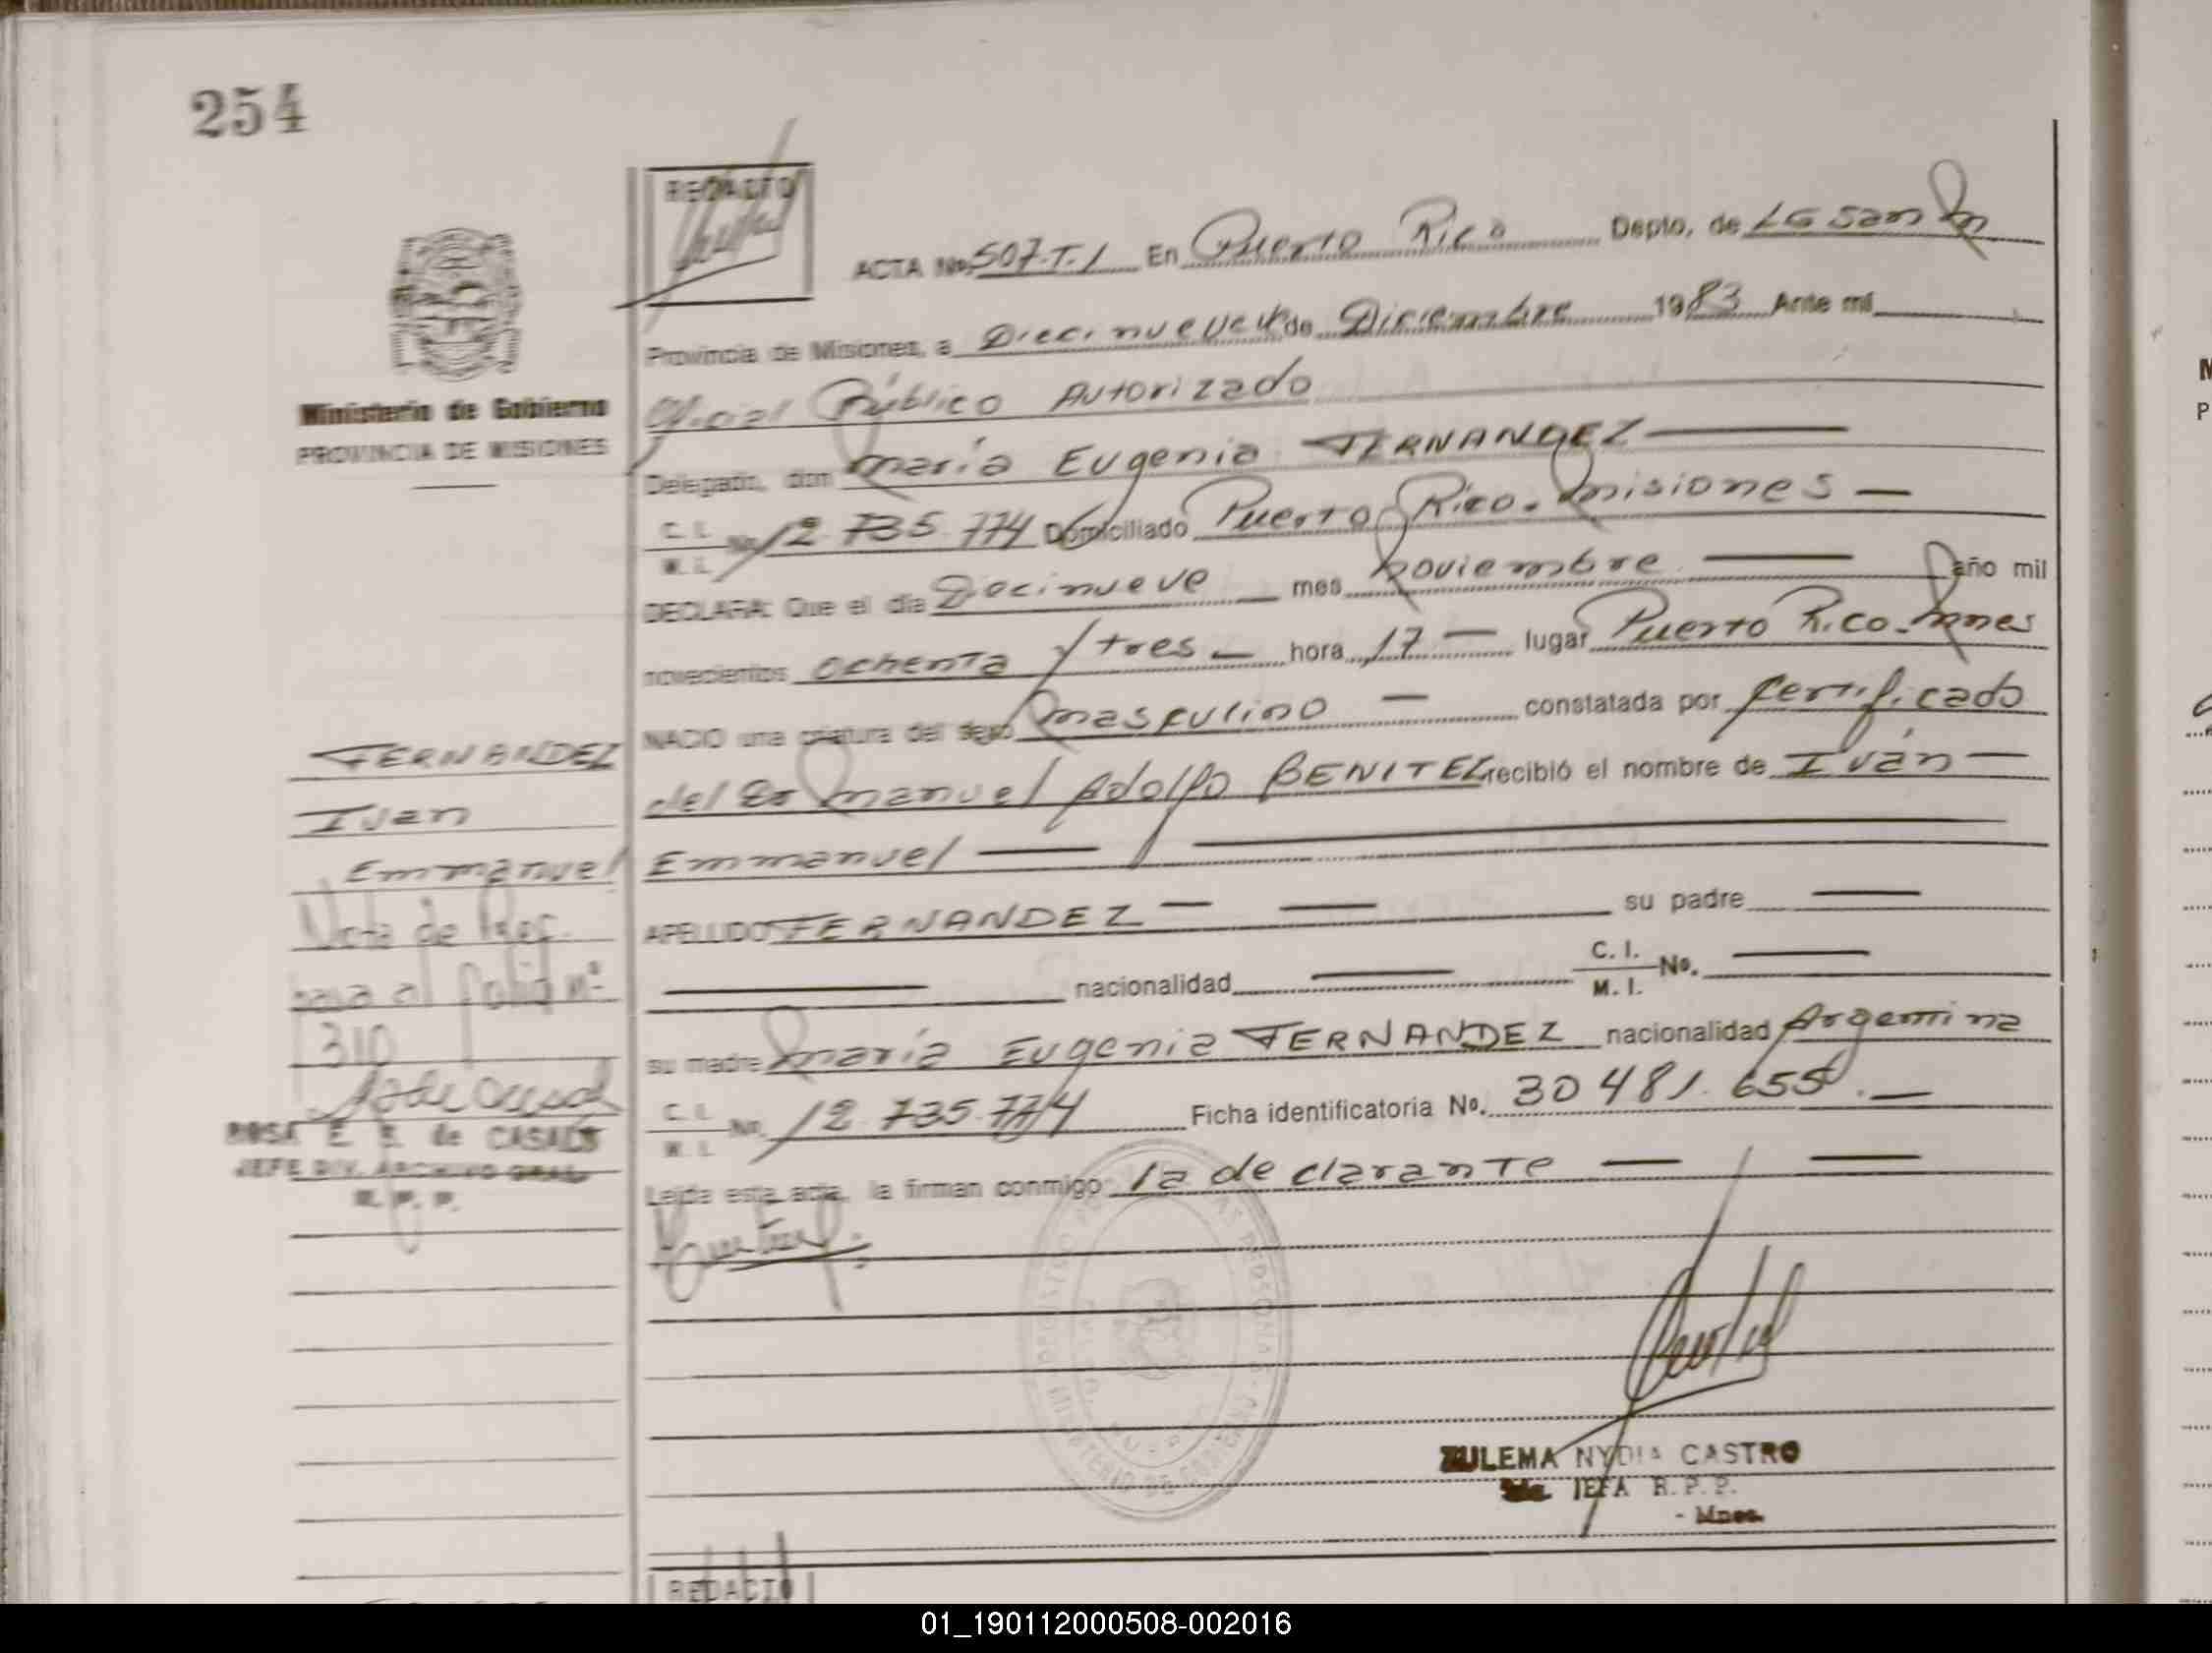 254
REDACTO
ACTA No. 507.T.1 En Puerto Rico Depto, de LG San Mn
Provincia de Misiones, a Diecinueve de Diciembre 1983 Ante mi
Oficial Público Autorizado
Ministerio de Gobierno
PROVINCIA DE MISIONES
Delegado, don María Eugenia FERNANDEZ
C. I.
M. I. No 12.735.774 Domiciliado Puerto Rico. Misiones
DECLARA: Que el día Diecinueve mes noviembre año mil
novecientos ochenta y tres hora 17 lugar Puerto Rico. Mnes
NACIO una criatura del sexo masculino constatada por certificado
del Dr Manuel Adolfo BENITEZ recibió el nombre de Iván
Emmanuel
APELLIDO FERNANDEZ su padre
nacionalidad C. I.
M. I. No.
su madre María Eugenia FERNANDEZ nacionalidad Argentina
C. I.
M. I. No. 12.735.774 Ficha identificatoria No. 30481.655.
Leída esta acta, la firman conmigo la declarante
FERNANDEZ
Ivan
Emmanuel
Nota de Ref.
pasa al folio Nº
310
ROSA E. de CASALS
JEFE DIV. ARCHIVO GRAL
R. P. P.
MINISTERIO DE GOBIERNO
ZULEMA NYDIA CASTRO
JEFA R. P. P.
- Mnes.
REDACTO
01_190112000508-002016